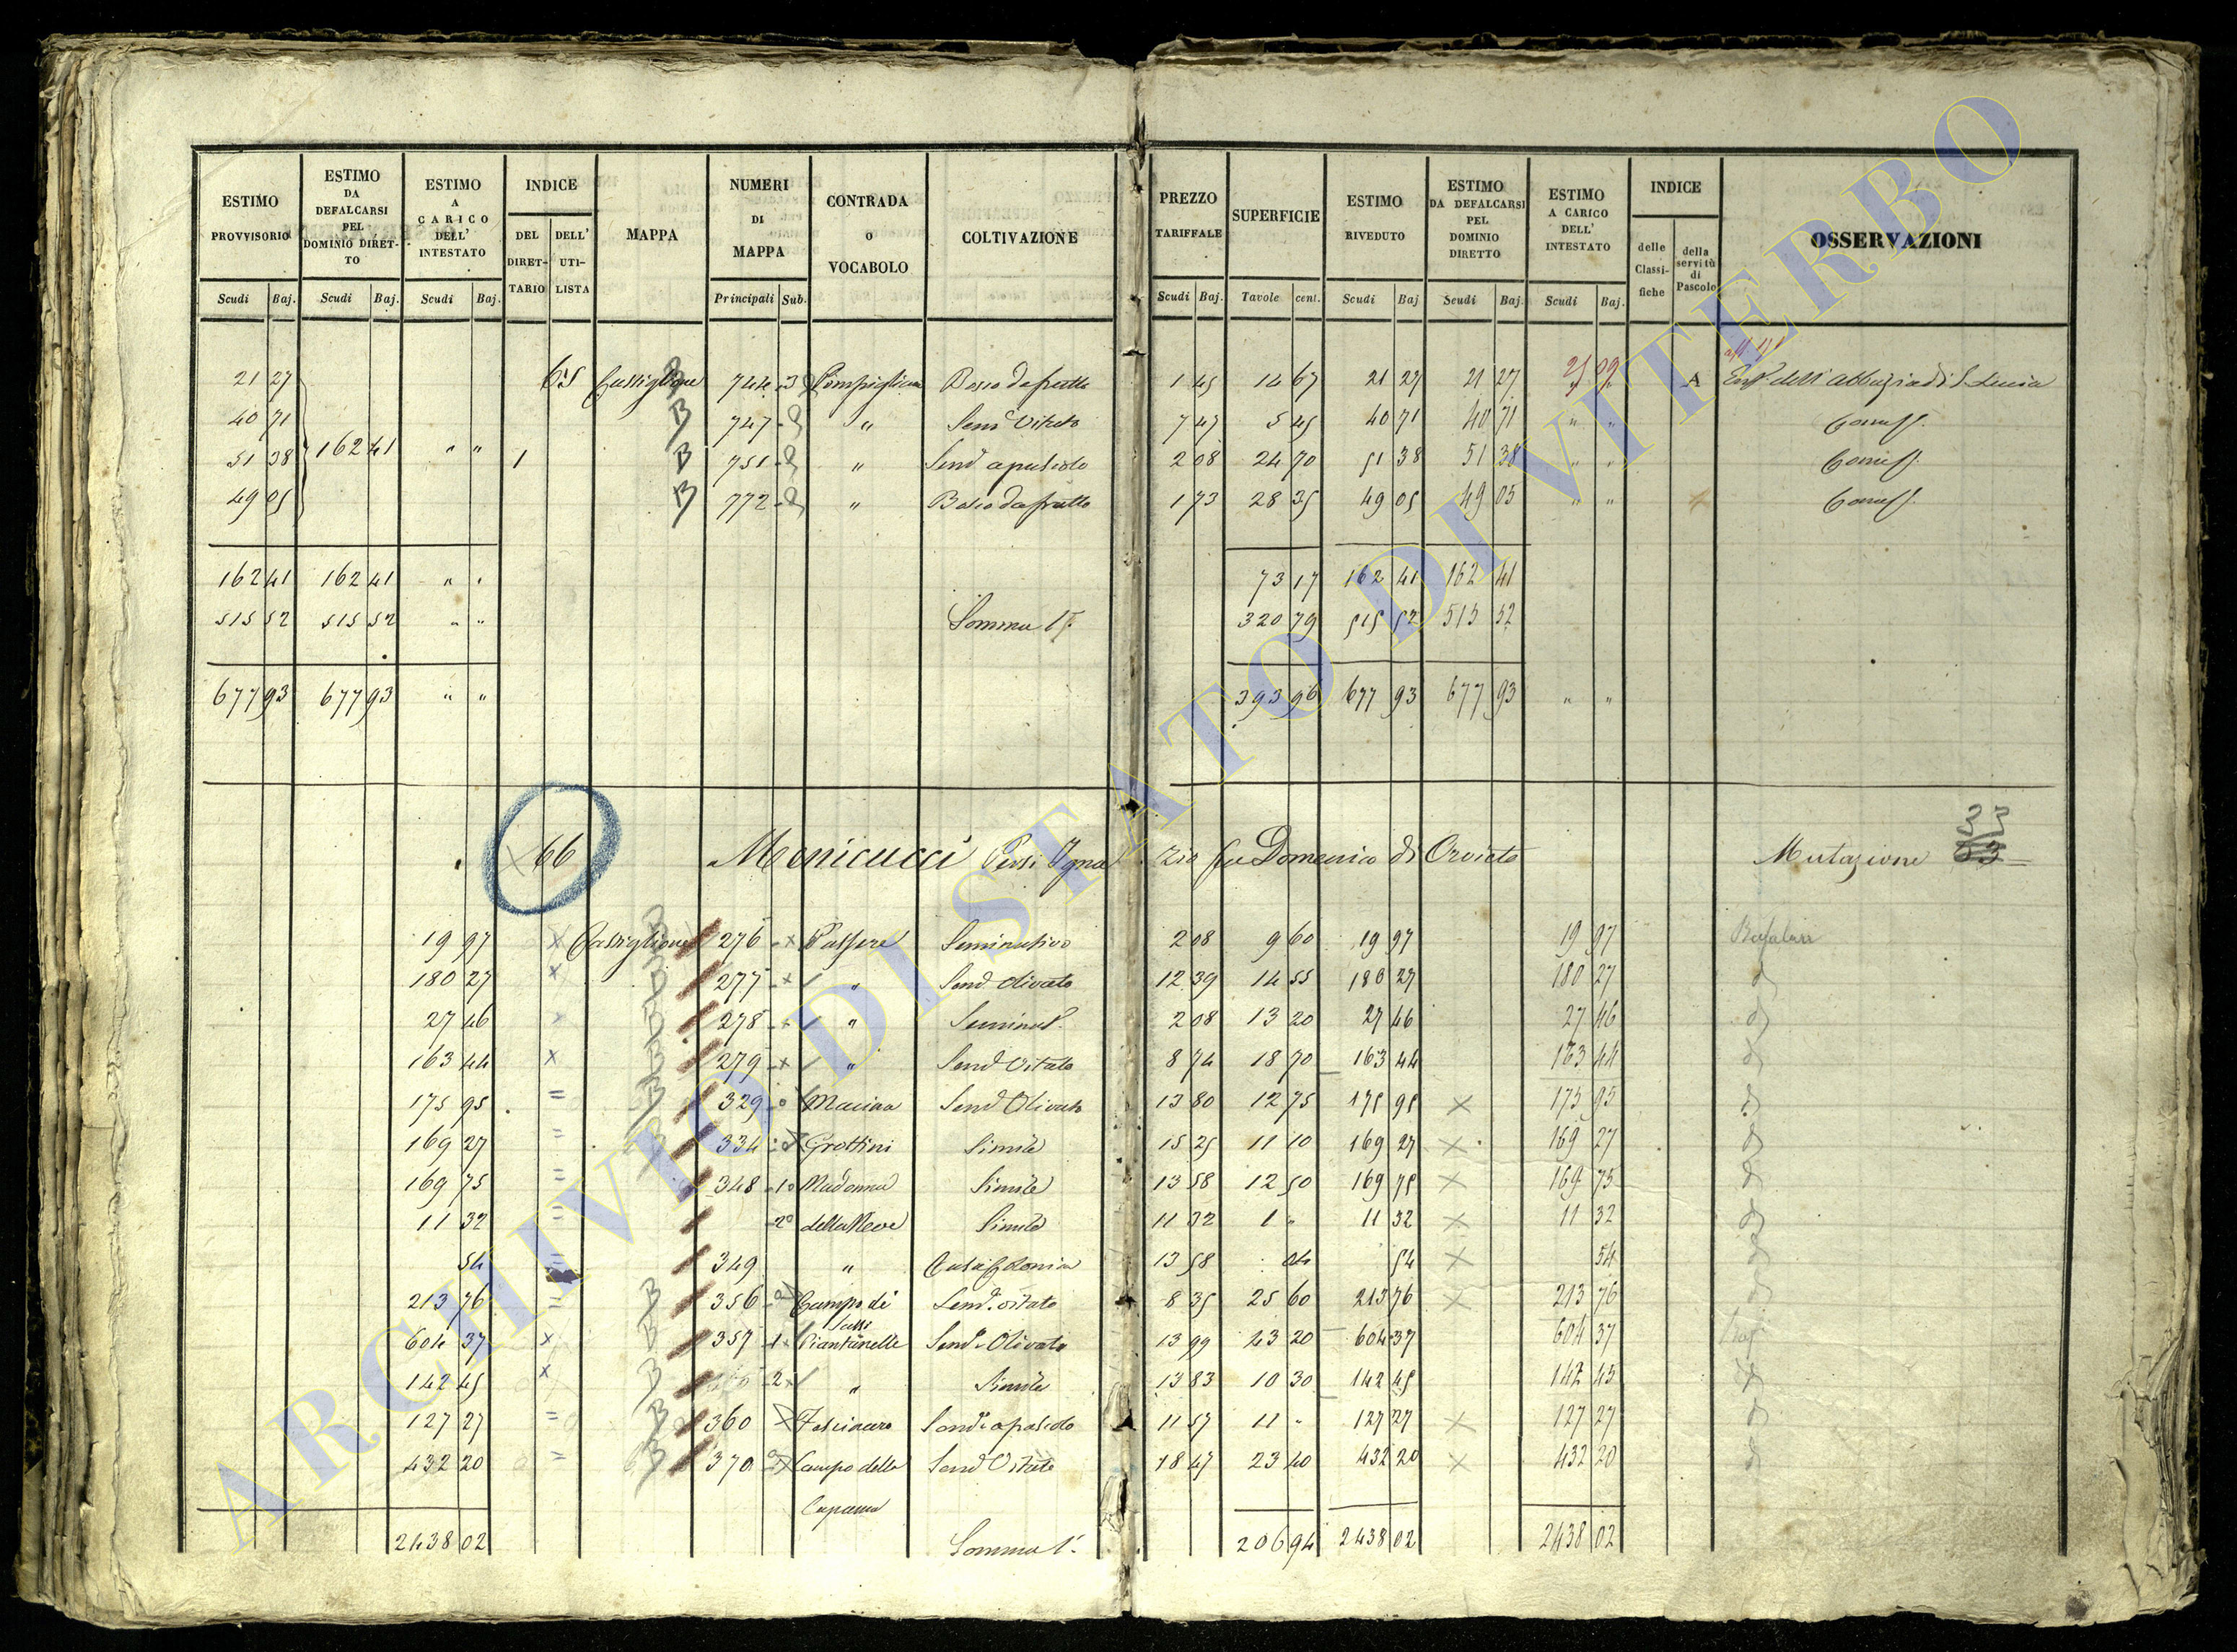 ESTIMO PROVVISORIO | ESTIMO DA DEFALCARSI PEL DOMINIO DIRETTO | ESTIMO A CARICO DELL' INTESTATO | INDICE DEL DIRETTARIO | DELL' UTILISTA | MAPPA | NUMERI DI MAPPA | CONTRADA O VOCABOLO | COLTIVAZIONE | PREZZO TARIFFALE | SUPERFICIE | ESTIMO RIVEDUTO | ESTIMO DA DEFALCARSI PEL DOMINIO DIRETTO | ESTIMO A CARICO DELL' INTESTATO | INDICE delle Classifiche | della servitù di Pascolo | OSSERVAZIONI
Scudi Baj. | Scudi Baj. | Scudi Baj. | Principali Sub. | Scudi Baj. | Tavole cent. | Scudi Baj | Scudi Baj. | Scudi Baj.
21 27 | 65 | B | 744 3 | Bosco da frutto | 1 45 | 14 67 | 21 27 | 21 27 | A | dell' Abbazia di S. Lucia
40 71 | B | 747 | " | Semo Vitato | 7 47 | 5 45 | 40 71 | 40 71 | " "
51 38 | 162 41 | " " | 1 | B | 751 | " | Semo a pascolo | 2 08 | 24 70 | 51 38 | 51 38 | " "
49 05 | B | 772 | " | Bosco da frutto | 1 73 | 28 35 | 49 05 | 49 05 | " "
162 41 | 162 41 | " " | 73 17 | 162 41 | 162 41
515 52 | 515 52 | " " | Somma | 320 79 | 515 52 | 515 52
677 93 | 677 93 | " " | 393 96 | 677 93 | 677 93 | " "
66 | Menicucci Persi Ignazio fu Domenico di Orvieto | Mutazione
19 97 | x | Castiglione | 276 x | Passere | Seminativo | 2 08 | 9 60 | 19 97 | 19 97
180 27 | x | B | 277 x | " | Semo Olivato | 12 39 | 14 55 | 180 27 | 180 27
27 46 | x | B | 278 x | " | Seminat. | 2 08 | 13 20 | 27 46 | 27 46
163 44 | x | B | 279 x | " | Semo Vitato | 8 74 | 18 70 | 163 44 | 163 44
175 95 | = | B | 329 | Macina | Semo Olivato | 13 80 | 12 75 | 175 95 | x | 175 95
169 27 | = | 334 | Grottini | Simile | 15 25 | 11 10 | 169 27 | x | 169 27
169 75 | = | 348 1 | Madonna | Simile | 13 58 | 12 50 | 169 75 | x | 169 75
11 32 | = | 2 | della Neve | Simile | 11 32 | 1 " | 11 32 | x | 11 32
54 | = | 349 | " | Casa Colonica | 13 58 | 04 | 54 | x | 54
213 76 | = | B | 356 | Campo di | Semo vitato | 8 35 | 25 60 | 213 76 | x | 213 76
604 37 | x | B | 357 1 | Piantanelle | Semo Olivato | 13 99 | 43 20 | 604 37 | 604 37
142 45 | x | B | 2 | " | Simile | 13 83 | 10 30 | 142 45 | 142 45
127 27 | = | B | 360 | Semo a pascolo | 11 57 | 11 " | 127 27 | x | 127 27
432 20 | = | B | 370 | Campo della | Semo Vitato | 18 47 | 23 40 | 432 20 | x | 432 20
Capanna
2438 02 | Somma | 206 94 | 2438 02 | 2438 02
ARCHIVIO DI STATO DI VITERBO